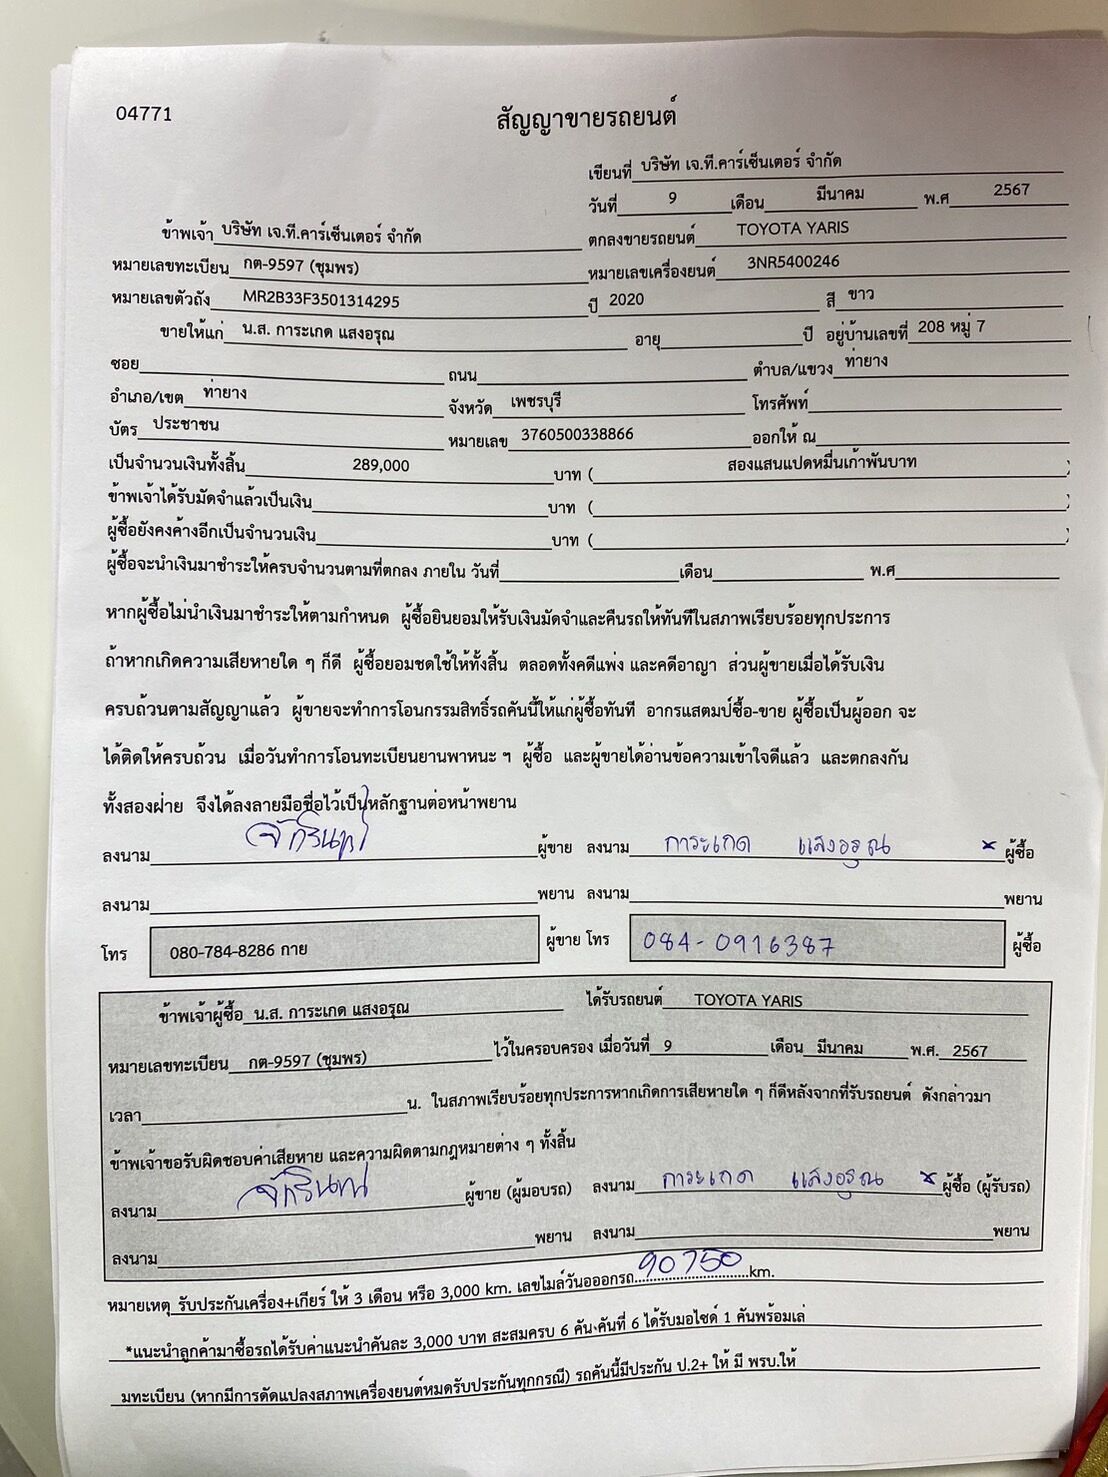 04771
สัญญาขายรถยนต์
เขียนที่ บริษัท เจ.ที.คาร์เซ็นเตอร์ จำกัด
วันที่ 9 เดือน มีนาคม พ.ศ 2567
ข้าพเจ้า บริษัท เจ.ที.คาร์เซ็นเตอร์ จำกัด ตกลงขายรถยนต์ TOYOTA YARIS
หมายเลขทะเบียน กต-9597 (ชุมพร) หมายเลขเครื่องยนต์ 3NR5400246
หมายเลขตัวถัง MR2B33F3501314295 ปี 2020 สี ขาว
ขายให้แก่ น.ส. การะเกด แสงอรุณ อายุ ปี อยู่บ้านเลขที่ 208 หมู่ 7
ซอย ถนน ตำบล/แขวง ท่ายาง
อำเภอ/เขต ท่ายาง จังหวัด เพชรบุรี โทรศัพท์
บัตร ประชาชน หมายเลข 3760500338866 ออกให้ ณ
เป็นจำนวนเงินทั้งสิ้น 289,000 บาท ( สองแสนแปดหมื่นเก้าพันบาท )
ข้าพเจ้าได้รับมัดจำแล้วเป็นเงิน บาท ( )
ผู้ซื้อยังคงค้างอีกเป็นจำนวนเงิน บาท ( )
ผู้ซื้อจะนำเงินมาชำระให้ครบจำนวนตามที่ตกลง ภายใน วันที่ เดือน พ.ศ
หากผู้ซื้อไม่นำเงินมาชำระให้ตามกำหนด ผู้ซื้อยินยอมให้รับเงินมัดจำและคืนรถให้ทันทีในสภาพเรียบร้อยทุกประการ
ถ้าหากเกิดความเสียหายใด ๆ ก็ดี ผู้ซื้อยอมชดใช้ให้ทั้งสิ้น ตลอดทั้งคดีแพ่ง และคดีอาญา ส่วนผู้ขายเมื่อได้รับเงิน
ครบถ้วนตามสัญญาแล้ว ผู้ขายจะทำการโอนกรรมสิทธิ์รถคันนี้ให้แก่ผู้ซื้อทันที อากรแสตมป์ซื้อ-ขาย ผู้ซื้อเป็นผู้ออก จะ
ได้ติดให้ครบถ้วน เมื่อวันทำการโอนทะเบียนยานพาหนะ ฯ ผู้ซื้อ และผู้ขายได้อ่านข้อความเข้าใจดีแล้ว และตกลงกัน
ทั้งสองฝ่าย จึงได้ลงลายมือชื่อไว้เป็นหลักฐานต่อหน้าพยาน
ลงนาม จักรินทร์ ผู้ขาย ลงนาม การะเกด แสงอรุณ x ผู้ซื้อ
ลงนาม พยาน ลงนาม พยาน
โทร 080-784-8286 กาย ผู้ขาย โทร 084-0916387 ผู้ซื้อ
ข้าพเจ้าผู้ซื้อ น.ส. การะเกด แสงอรุณ ได้รับรถยนต์ TOYOTA YARIS
หมายเลขทะเบียน กต-9597 (ชุมพร) ไว้ในครอบครอง เมื่อวันที่ 9 เดือน มีนาคม พ.ศ. 2567
เวลา น. ในสภาพเรียบร้อยทุกประการหากเกิดการเสียหายใด ๆ ก็ดีหลังจากที่รับรถยนต์ ดังกล่าวมา
ข้าพเจ้าขอรับผิดชอบค่าเสียหาย และความผิดตามกฎหมายต่าง ๆ ทั้งสิ้น
ลงนาม จักรินทร์ ผู้ขาย (ผู้มอบรถ) ลงนาม การะเกด แสงอรุณ x ผู้ซื้อ (ผู้รับรถ)
ลงนาม พยาน ลงนาม พยาน
หมายเหตุ รับประกันเครื่อง+เกียร์ ให้ 3 เดือน หรือ 3,000 km. เลขไมล์วันอออกรถ 90750 km.
*แนะนำลูกค้ามาซื้อรถได้รับค่าแนะนำคันละ 3,000 บาท สะสมครบ 6 คัน.คันที่ 6 ได้รับมอไซด์ 1 คันพร้อมเล่
มทะเบียน (หากมีการดัดแปลงสภาพเครื่องยนต์หมดรับประกันทุกกรณี) รถคันนี้มีประกัน ป.2+ ให้ มี พรบ.ให้